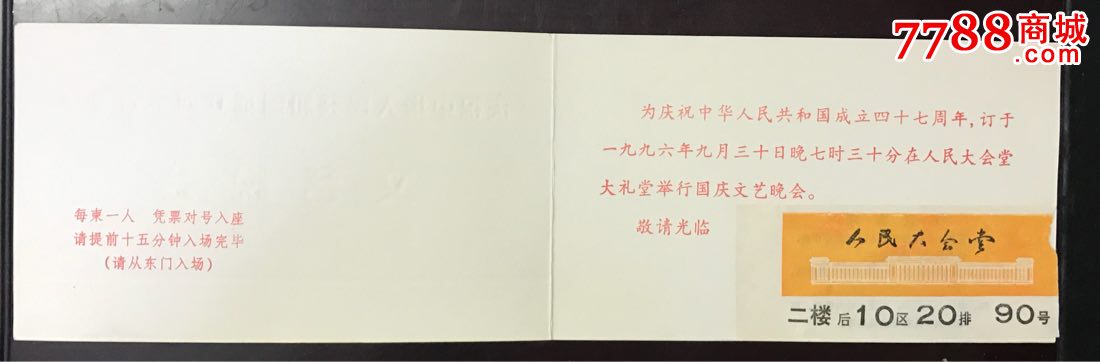 7788商城
.com
每柬一人 凭票对号入座
请提前十五分钟入场完毕
(请从东门入场)
为庆祝中华人民共和国成立四十七周年,订于
一九九六年九月三十日晚七时三十分在人民大会堂
大礼堂举行国庆文艺晚会。
敬请光临
人民大会堂
二楼后10区20排 90号